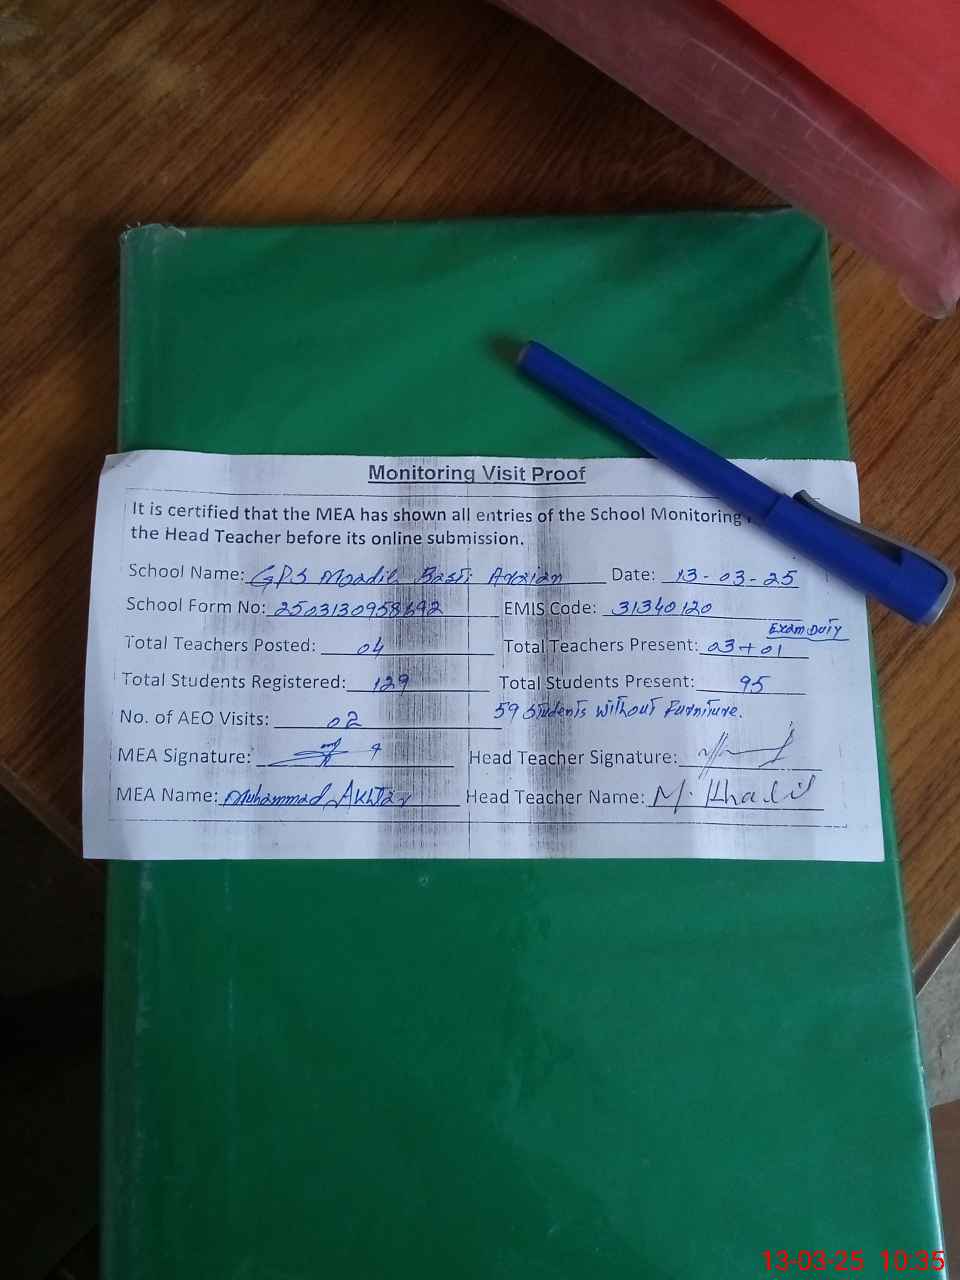 Monitoring Visit Proof
It is certified that the MEA has shown all entries of the School Monitoring
the Head Teacher before its online submission.
School Name: GPS Basti Date: 13-03-25
School Form No: EMIS Code: 31340120
Exam Duty
Total Teachers Posted: 04 Total Teachers Present: 03+01
Total Students Registered: 129 Total Students Present: 95
No. of AEO Visits: 02 59 Students Without Furniture.
MEA Signature: Head Teacher Signature:
MEA Name: Muhammad Akhtar Head Teacher Name: M. Khalid
13-03-25 10:35